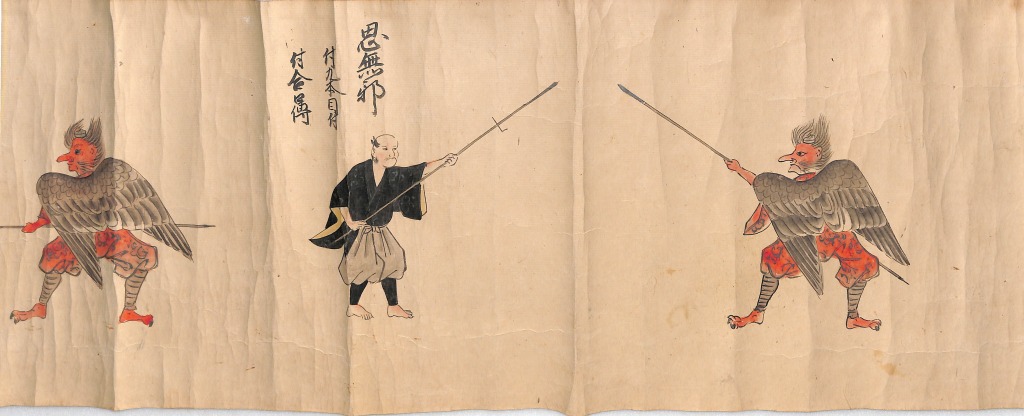 思無邪
付九本目付
付合